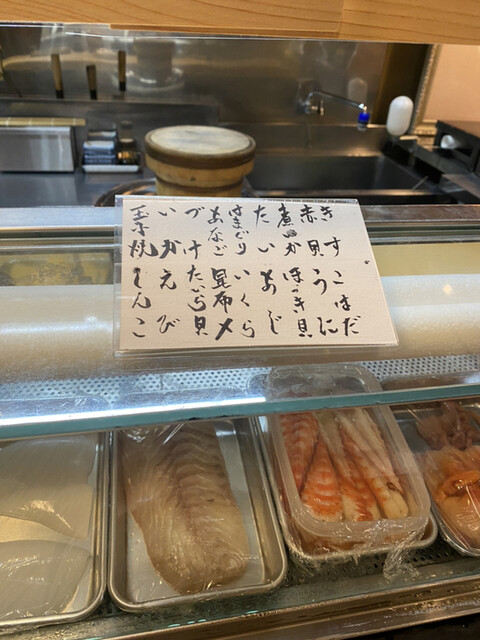 きす こはだ
赤貝 うに
煮いか ほっき貝
たい あじ
はまぐり いくら
あなご 昆布〆
づけ たいら貝
いか えび
玉子焼 しんこ